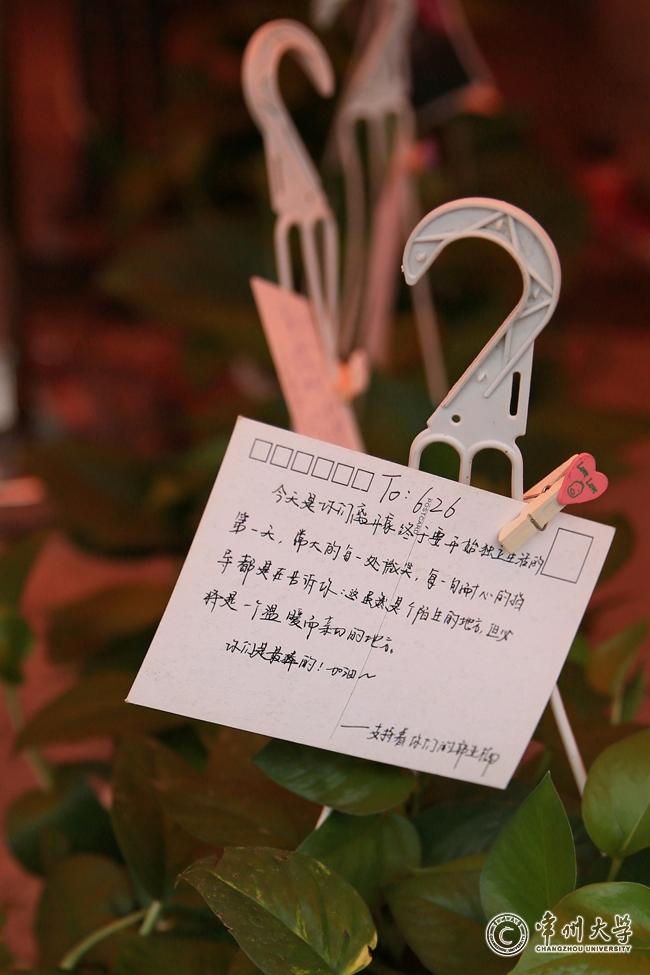 To: 626
POSTCARD
今天是你们离开家终于要开始独立生活的
第一天,常大的每一处微笑,每一句耐心的指
导都是在告诉你:这虽然是个陌生的地方,但必
将是一个温暖而亲切的地方。
你们是最棒的!加油~
——支持着你们的
Love Love
常州大学
CHANGZHOU UNIVERSITY